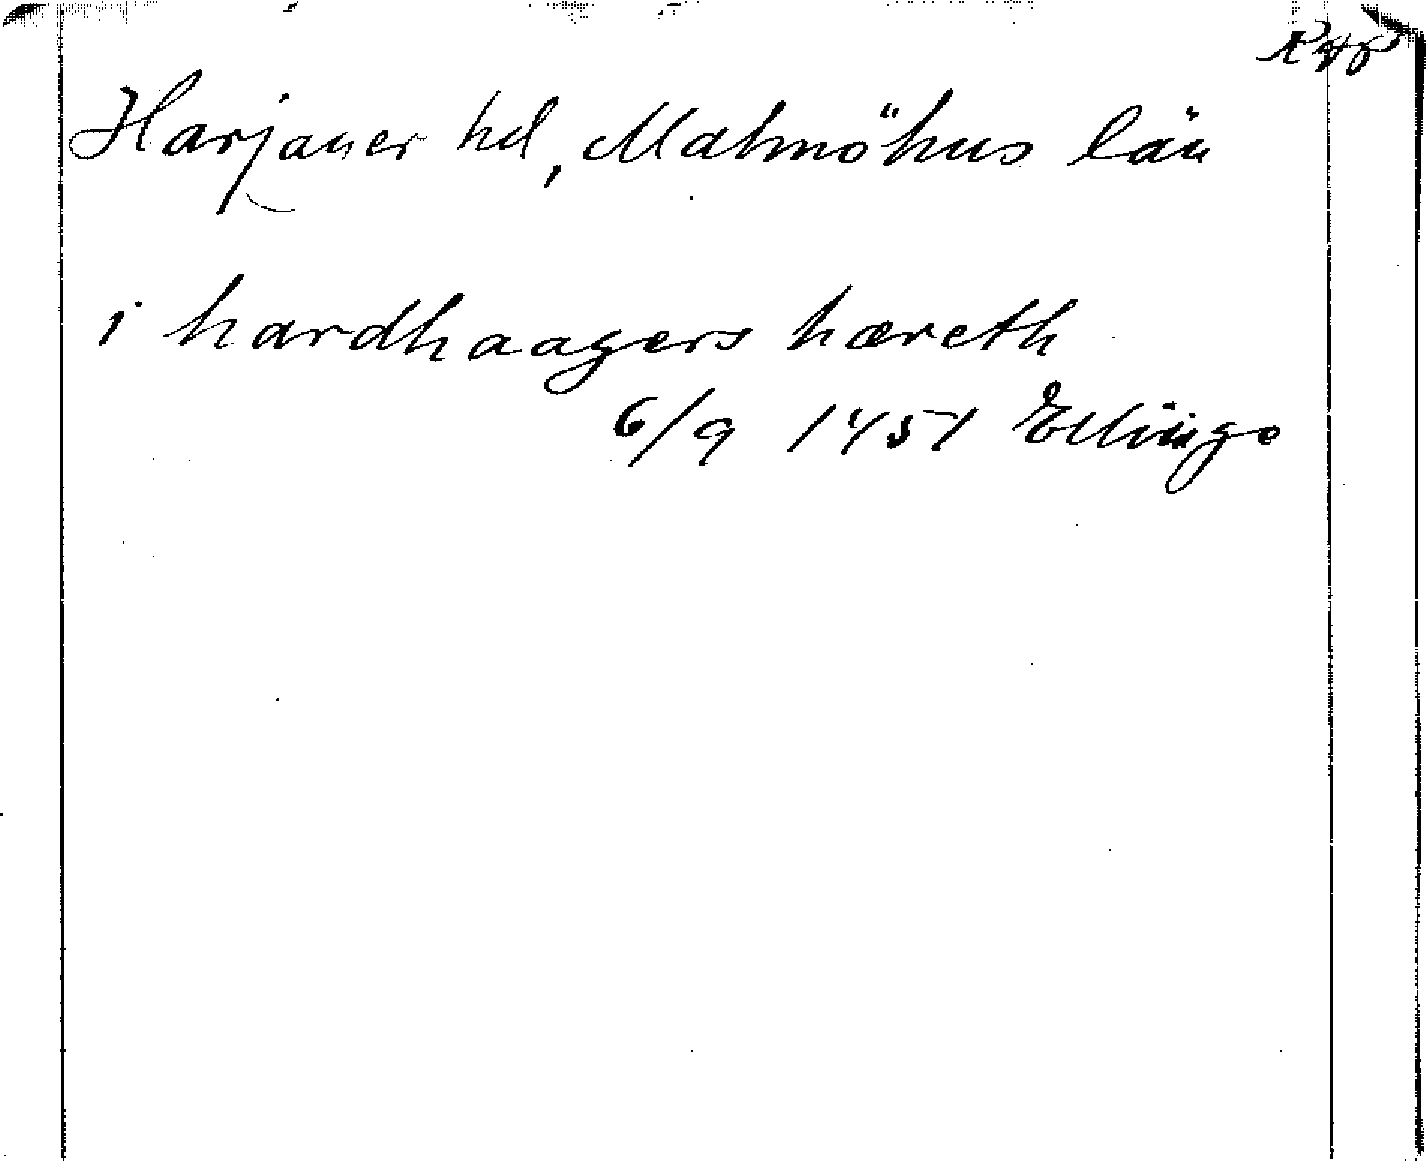 Harjager hd, Malmöhus län
i hardhaagers hæreth
6/9 1451 Ellinge